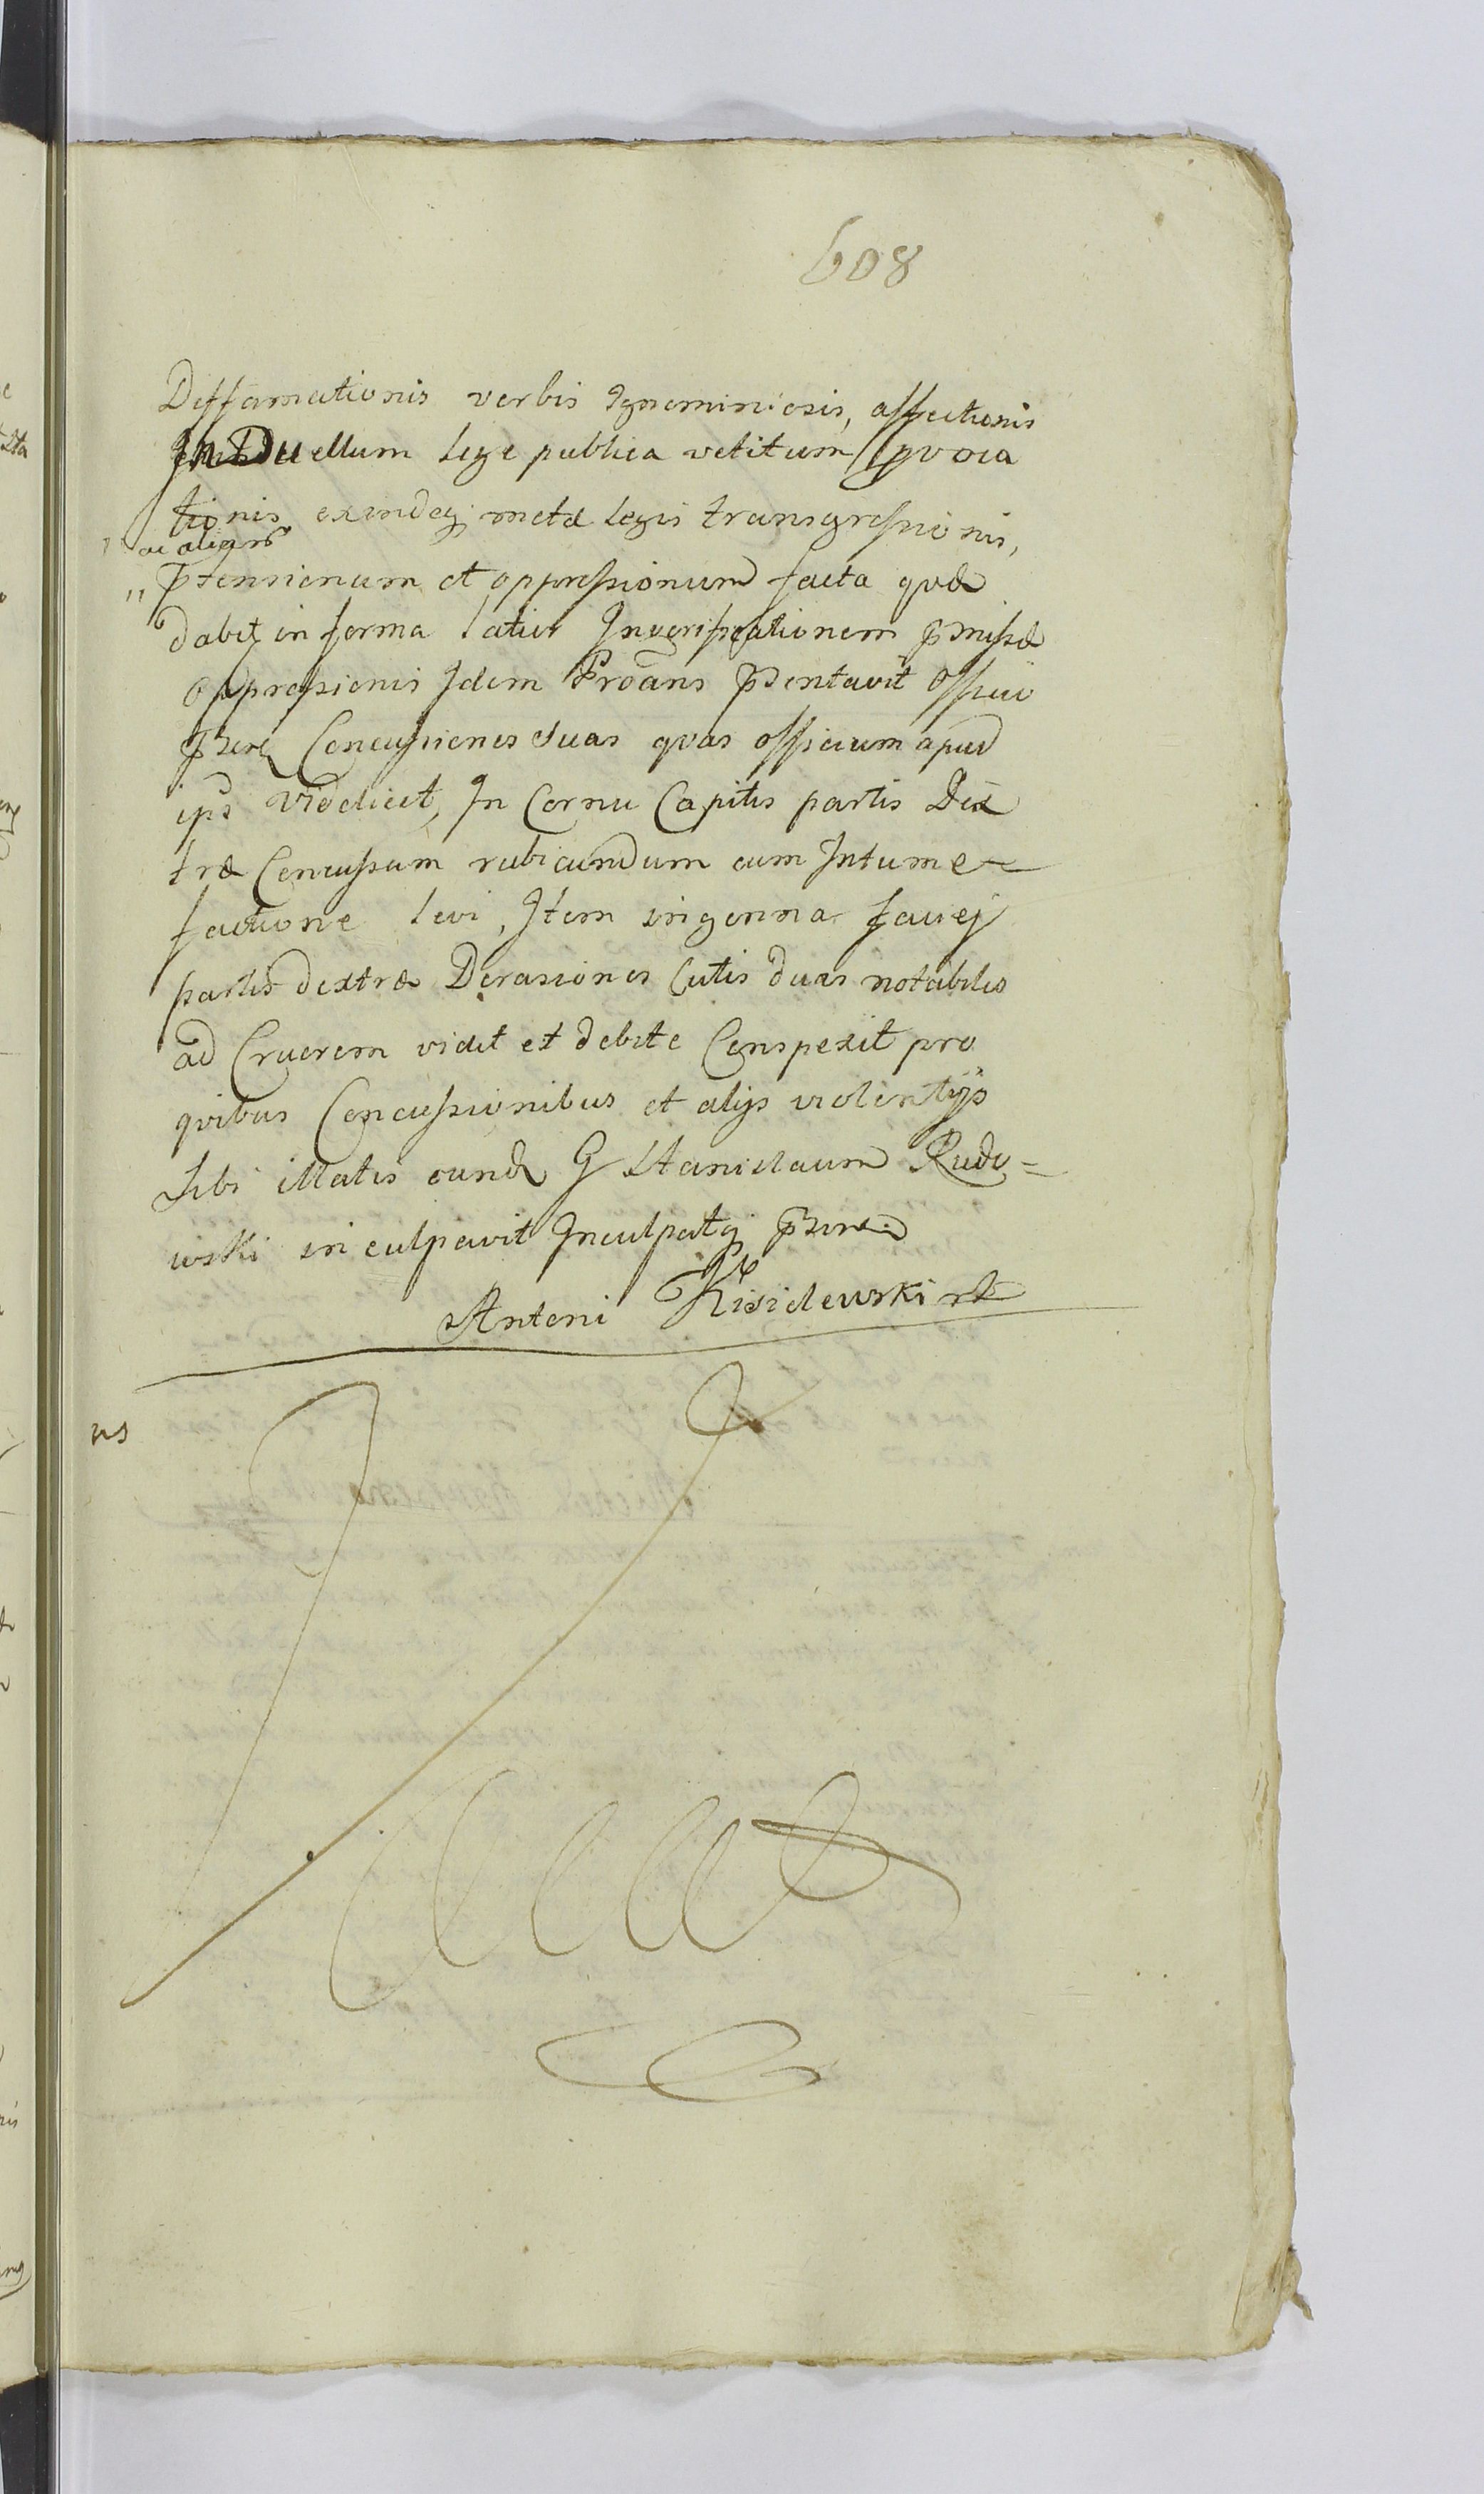 608
Deffamationis verbis Ignominiosis, affectionis
In Duellum lege publica vetitum provoca
tionis exindeq; metæ legis transgressionis,
" ac aliarũ
" p̃tensionum et oppressionum facta quæ
dabit in forma latiori Inverificationem p̃missæ
oppressionis Idem Proãns p̃sentavit officio
p̃senti Concussiones suas quas officium apud
ipsũ Videlicet, In Cornu Capitis partis Dex
træ Concussum rubicundum cum Intume-
factione levi, Item in genna faciej
partis dextræ Derasiones Cutis duas notabiles
ad Cruorem vidit et debite Conspexit pro
quibus Concussionibus et alijs violentijs
sibi illatis eund G Stanislaum Rudo=
wski inculpavit Inculpatq;
Antoni Kisielewski